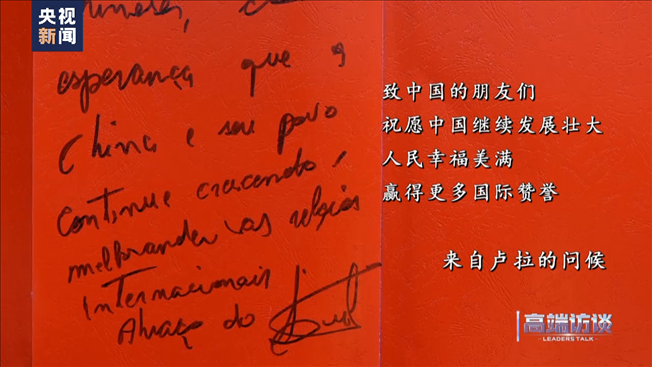 央视
新闻
esperança que a
China e seu povo
continue crescendo,
melhorando as relações
internacionais
Abraço do
致中国的朋友们
祝愿中国继续发展壮大
人民幸福美满
赢得更多国际赞誉
来自卢拉的问候
高端访谈
LEADERS TALK